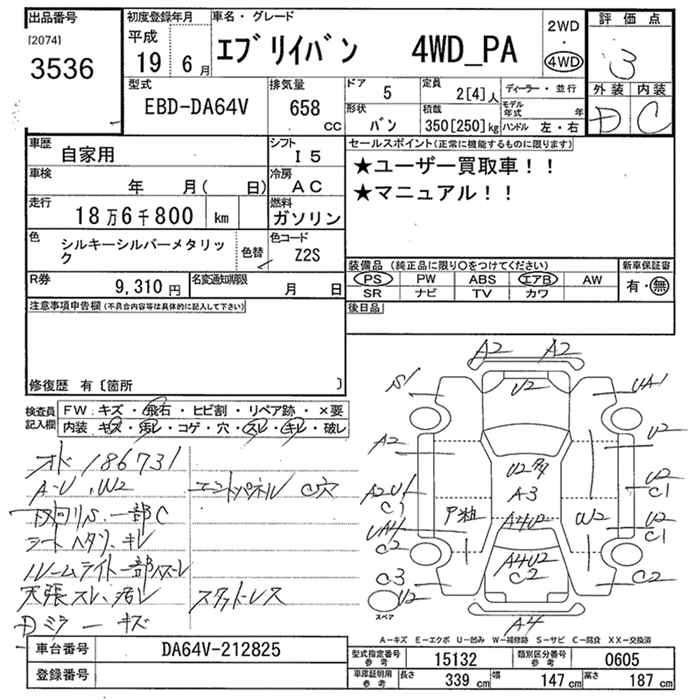 出品番号
[2074]
3536
初度登録年月
平成
19年 6月
車名・グレード
エブリイバン 4WD_PA
2WD
・
4WD
評価点
3
外装 内装
D C
型式
EBD-DA64V
排気量
658
CC
ドア
5
定員
2[4]人
ディーラー・並行
形状
バン
積載
350[250]kg
モデル年式 年
ハンドル 左・右
車歴
自家用
シフト
I5
車検
年 月( 日)
冷房
AC
走行
18万6千800 km
燃料
ガソリン
色
シルキーシルバーメタリック
色替
色コード
Z2S
R券
9,310円
名変通知期限
月 日
セールスポイント(正常に機能するものに限ります)
★ユーザー買取車!!
★マニュアル!!
装備品(純正品に限り○をつけてください)
PS PW ABS エアB AW
SR ナビ TV カワ
新車保証書
有・無
後日品
注意事項申告欄(不具合内容等は具体的に記入して下さい)
修復歴 有〔箇所 〕
検査員記入欄
FW:キズ・飛石・ヒビ割・リペア跡・×要
内装:キズ・汚レ・コゲ・穴・スレ・キレ・破レ
オド 186731
A-U、W2
エンドパネル C穴
下回りS、一部C
シートヘタリ、キレ
ルームライト一部ハズレ
天張スレ、汚レ
スタッドレス
Dミラーキズ
A2 A2
U2
S1
UA1
A2
U2
U2多
A-3
A4U2
A2-U1
C1
U2
C1
UA1
C2
W2
U2
C1
A4U2
C2
C3
C2
U2
スペア
A4
A-キズ E-エクボ U-凹み W-補修跡 S-サビ C-腐食 XX-交換済
車台番号
DA64V-212825
登録番号
型式指定番号
参考
15132
類別区分番号
参考
0605
車庫証明用
参考
長さ
339 cm
幅
147 cm
高さ
187 cm